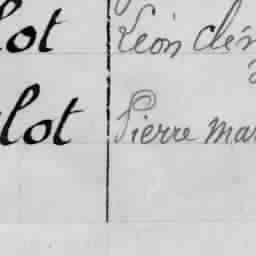 lot Léon clé
lot Pierre mar